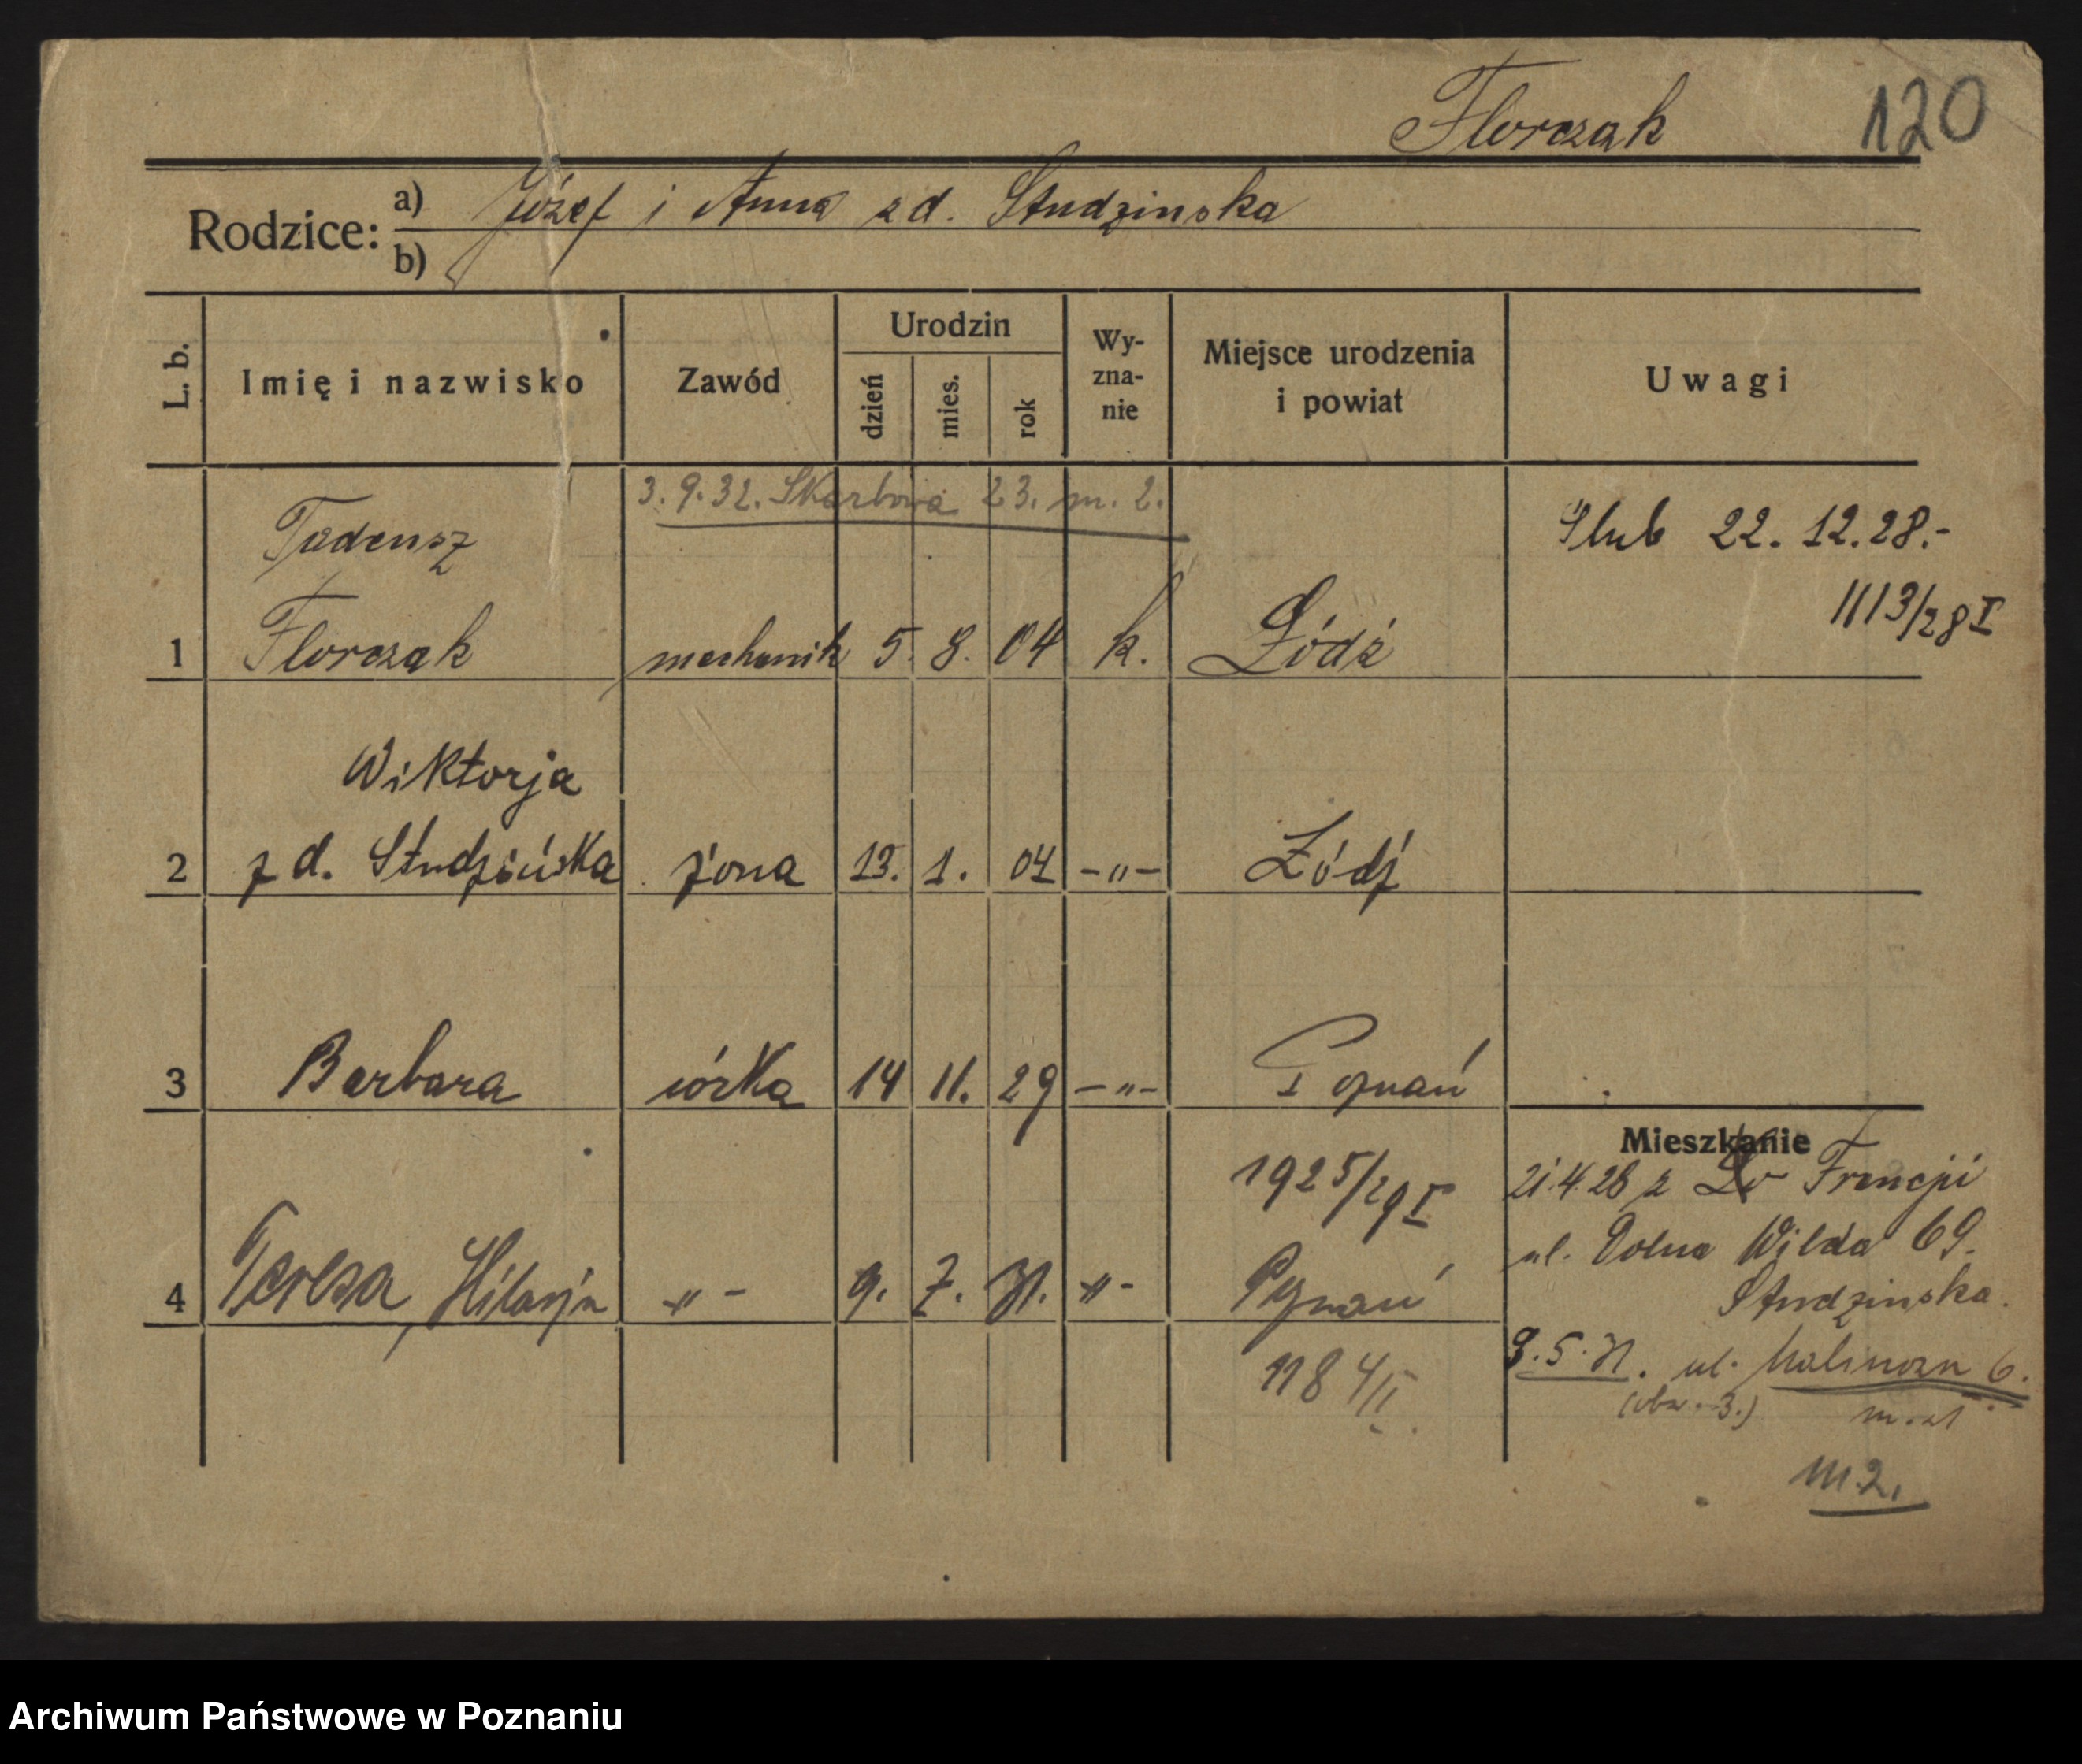 Florczak 120
Rodzice: a) Józef i Anna z d. Studzinska
b)
L. b. Imię i nazwisko Zawód Urodzin dzień mies. rok Wy-zna-nie Miejsce urodzenia i powiat Uwagi
3.9.32. Skarbowa 23. m. 2.
Tadeusz Slub 22.12.28.-
1113/28 I
1 Florczak mechanik 5. 8. 04 k. Łódź
Wiktorja
2 z d. Studzińska żona 13. 1. 04 -"- Łódź
3 Barbara córka 14 11. 29 -"- Poznań
Mieszkanie
1925/29 I
21.4.28 z Francji
ul. Dolna Wilda 69.
Studzinska.
4 Teresa, Hilarja -"- 9. 7. 31. -"- Poznań
1184/II
5.31. ul. Malinowa 6.
m. 2.
Archiwum Państwowe w Poznaniu